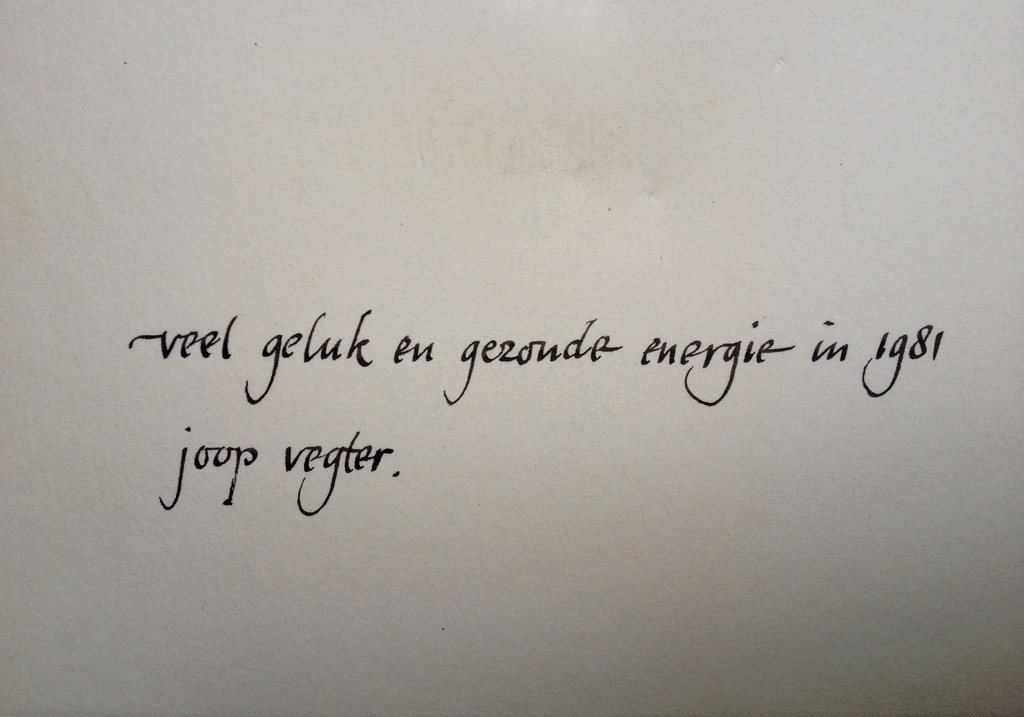 veel geluk en gezonde energie in 1981
joop vegter.